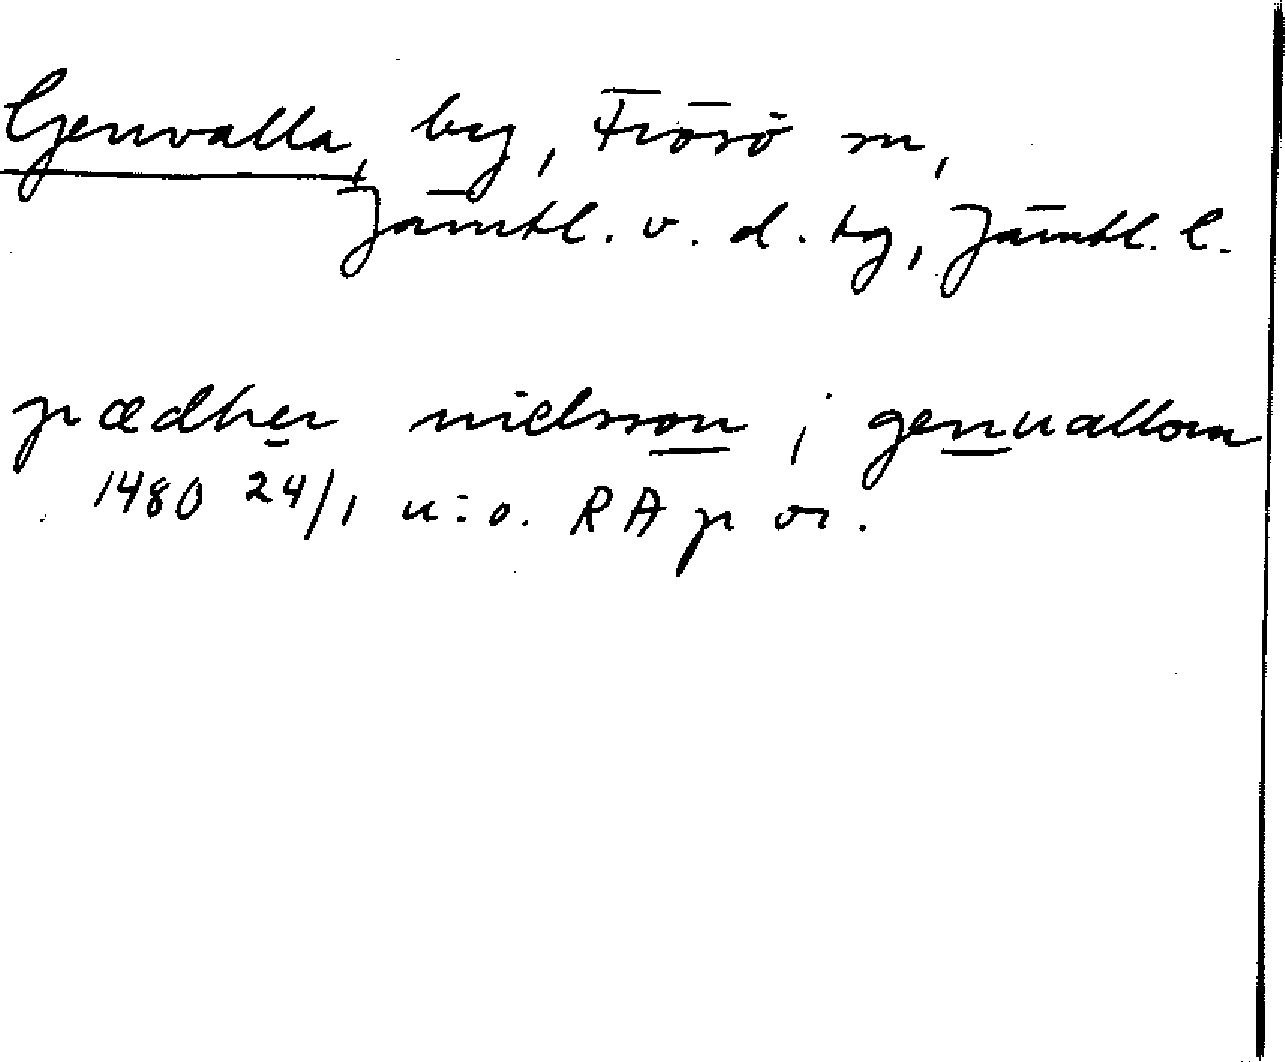 Genvalla, by, Frösö sn,
Jämtl. v. d. tg, Jämtl. l.
pædher nielsson i genuallom
1480 24/1 u: o. RA p or.